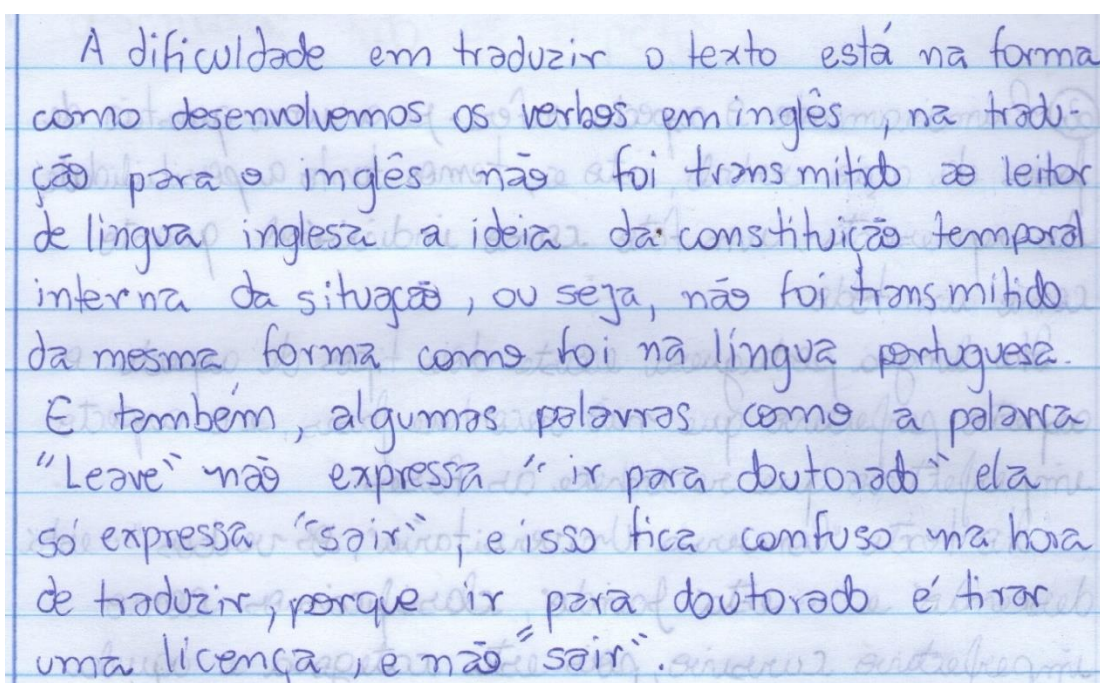 A dificuldade em traduzir o texto está na forma
como desenvolvemos os verbos em inglês, na tradu-
ção para o inglês não foi transmitido ao leitor
de língua inglesa a ideia da constituição temporal
interna da situação, ou seja, não foi transmitido
da mesma forma como foi na língua portuguesa.
E também, algumas palavras como a palavra
"Leave" não expressa "ir para doutorado" ela
só expressa "sair", e isso fica comfuso na hora
de traduzir, porque ir para doutorado é tirar
uma licença, e não "sair".